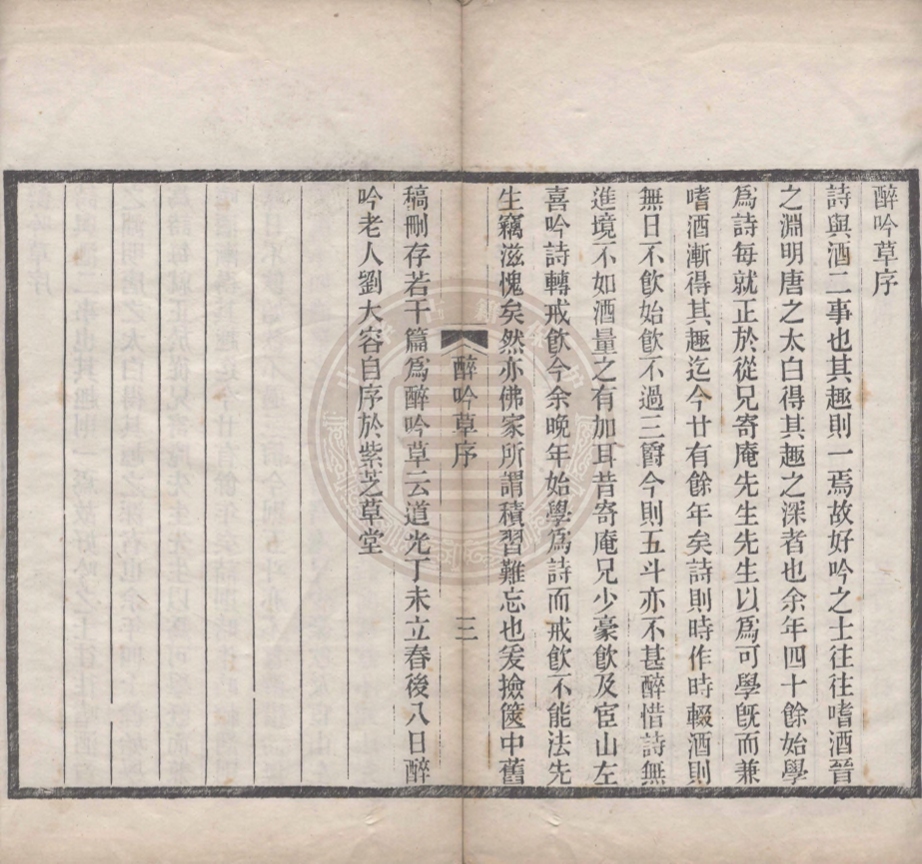 醉吟草序
詩與酒二事也其趣則一焉故好吟之士往往嗜酒晉
之淵明唐之太白得其趣之深者也余年四十餘始學
爲詩每就正於從兄寄庵先生先生以爲可學旣而兼
嗜酒漸得其趣迄今廿有餘年矣詩則時作時輟酒則
無日不飲始飲不過三爵今則五斗亦不甚醉惜詩無
進境不如酒量之有加耳昔寄庵兄少豪飲及宦山左
喜吟詩轉戒飲今余晚年始學爲詩而戒飲不能法先
生竊滋愧矣然亦佛家所謂積習難忘也爰撿篋中舊
醉吟草序
三
稿刪存若干篇爲醉吟草云道光丁未立春後八日醉
吟老人劉大容自序於紫芝草堂